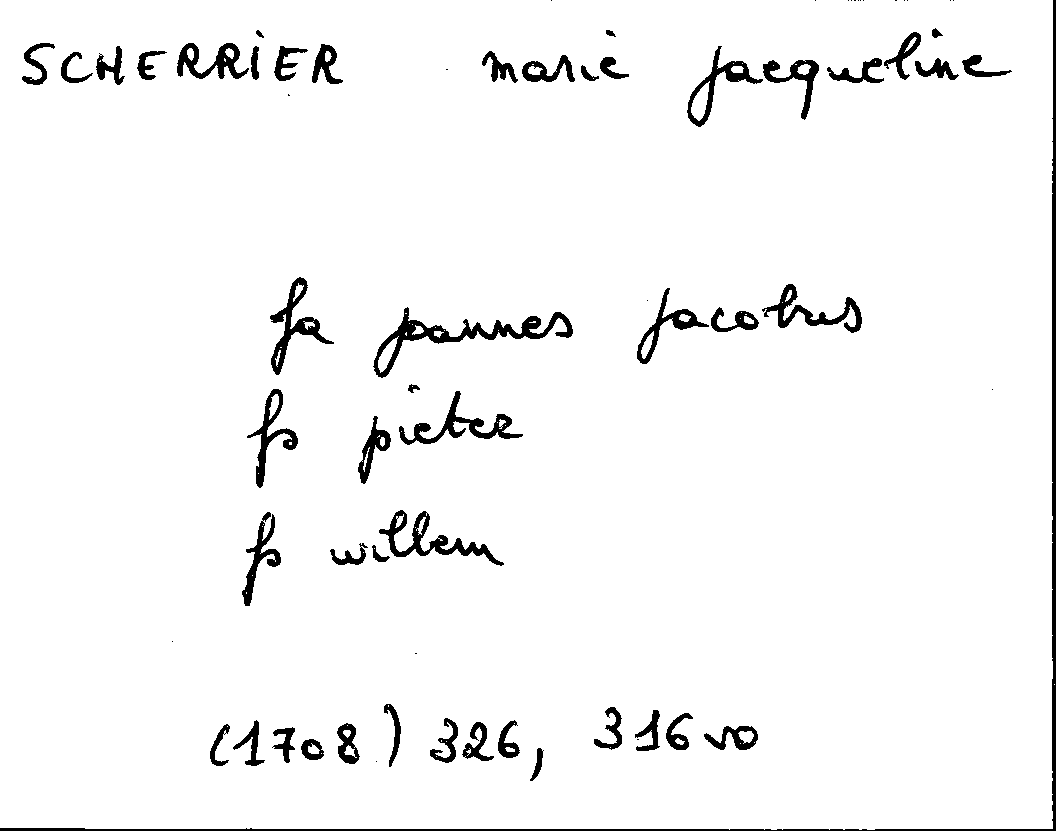 SCHERRIER marie jacqueline
fa joannes jacobus
fs pieter
fs willem
(1708) 326, 316vo